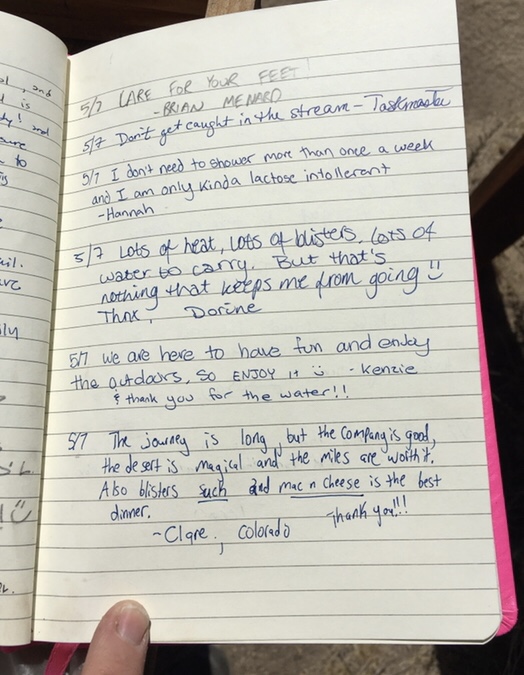 5/7 CARE FOR YOUR FEET!
- BRIAN MENARD
5/7 Don't get caught in the stream - Taskmaster
5/7 I don't need to shower more than once a week
and I am only kinda lactose intollerant
- Hannah
5/7 Lots of heat, lots of blisters, lots of
water to carry. But that's
nothing that keeps me from going
Thnx, Dorine
5/7 we are here to have fun and enjoy
the outdoors, so ENJOY it - Kenzie
& thank you for the water!!
5/7 The journey is long, but the company is good,
the desert is magical and the miles are worth it.
Also blisters such and mac n cheese is the best
dinner. Thank you!!!
~Clare, Colorado
and
is
and
to
ail.